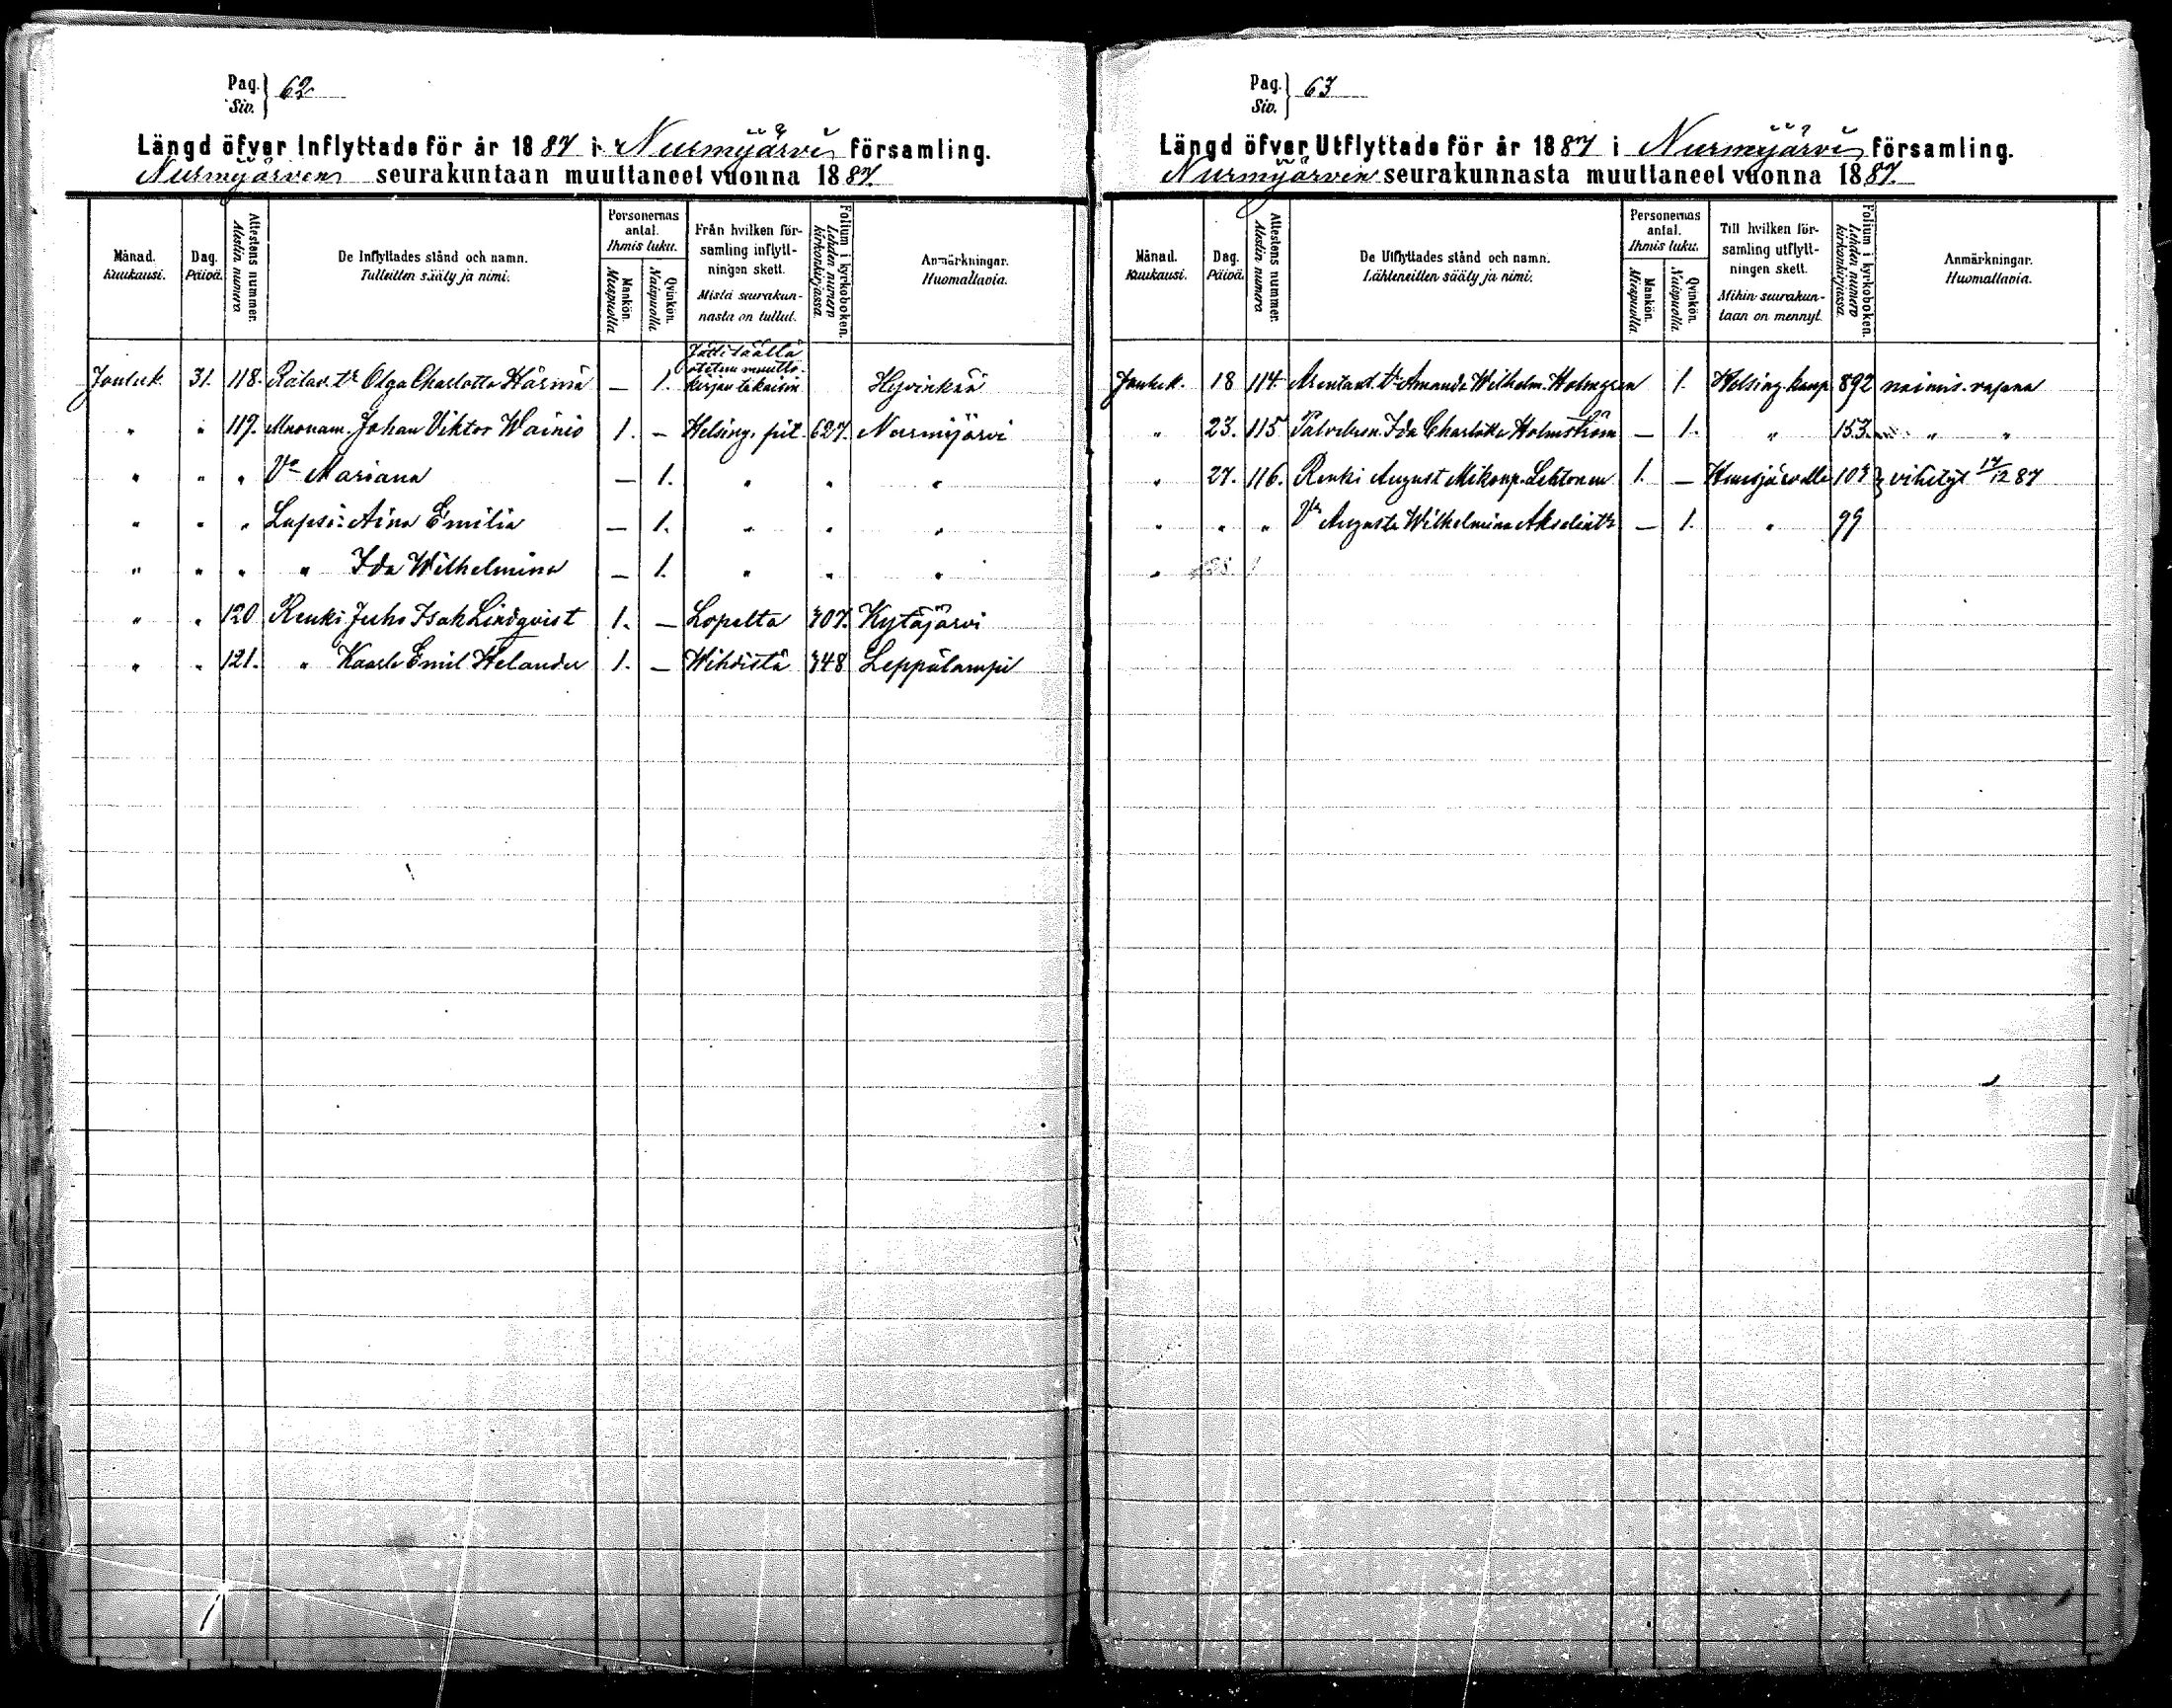 Pag. Siv. } 62
Längd öfver Inflyttade för år 1887 i Nurmijärvi församling.
Nurmijärven seurakuntaan muuttaneet vuonna 1887.
Månad. Kuukausi.
Dag. Päivä.
Attestens nummer. Atestin numero
De Inflyttades stånd och namn. Tulleitten sääty ja nimi.
Personernas antal. Ihmis luku.
Mankön. Miespuolia
Qvinkön. Naispuolia
Från hvilken församling inflyttningen skett. Mistä seurakunnasta on tullut.
Folium i kyrkoboken. Lehden numero kirkonkirjassa.
Anmärkningar. Huomattavia.
Jouluk. 31. 118. Rätar. tr Olga Charlotta Härmä — 1. Hyvinkää
" " 119. Johan Viktor Wainio 1. — Helsing. pit. 627. Nurmijärvi
" " " Vo Mariana — 1. " " "
" " " Lapsi: Aina Emilia — 1. " " "
" " " " Ida Wilhelmina — 1. " " "
" " 120 Renki Juho Isak Lindqvist 1. — Lopelta 307. Kytäjärvi
" " 121. " Kaarle Emil Helander 1. — Wihdistä 348 Leppälampi
Pag. Siv. } 63
Längd öfver Utflyttade för år 1887 i Nurmijärvi församling.
Nurmijärven seurakunnasta muuttaneet vuonna 1887.
Månad. Kuukausi.
Dag. Päivä.
Attestens nummer. Atestin numero
De Utflyttades stånd och namn. Lähteneitten sääty ja nimi.
Personernas antal. Ihmis luku.
Mankön. Miespuolia.
Qvinkön. Naispuolia
Till hvilken församling utflyttningen skett. Mihin seurakuntaan on mennyt.
Folium i kyrkoboken. Lehden numero kirkonkirjassa.
Anmärkningar. Huomattavia.
Jouluk. 18 114. Arentant. tr Amanda Wilhelm. Holmgren 1. Helsing. kaup. 892 naimis. vapaa
" 23. 115 Palvelian. Ida Charlotta Holmström — 1. " 153. " "
" 27. 116. Renki August Mikonp. Lehtonen 1. — Hausjärvelle 107 } vihityt 17/12 87
" " " Vo Augusta Wilhelmina Akselintr — 1. " 99
"